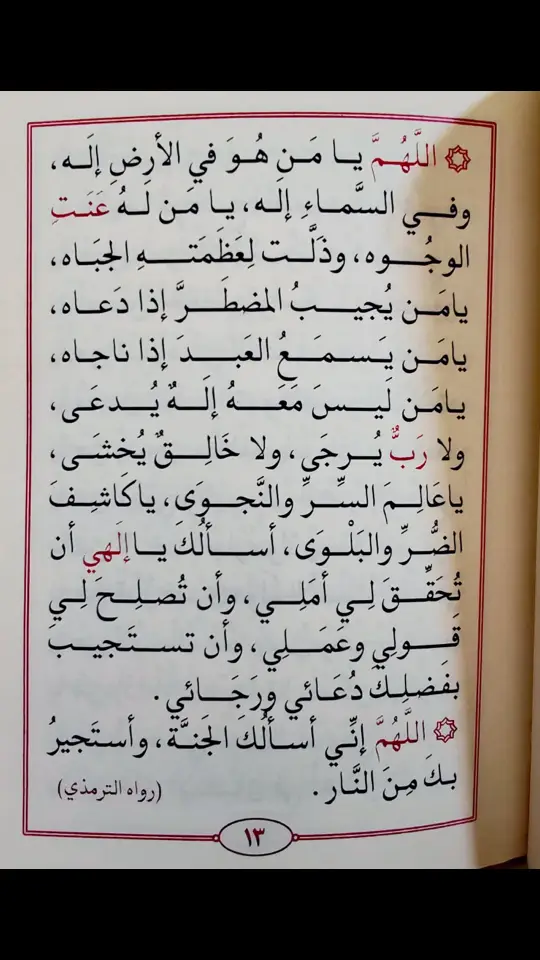 ۞ اللَّهُمَّ يا مَن هُوَ في الأرضِ إلَه،
وفي السَّماءِ إله، يا مَن لَهُ عَنَتِ
الوجُوه، وذَلَّت لِعَظَمَتهِ الجبَاه،
يامَن يُجيبُ المضطَرَّ إذا دَعَاه،
يامَن يَسمَعُ العَبدَ إذا ناجاه،
يامَن لَيسَ مَعَهُ إلَهٌ يُدعَى،
ولا رَبٌّ يُرجَى، ولا خَالِقٌ يُخشَى،
ياعَالِمَ السِّرِّ والنَّجوَى، ياكَاشِفَ
الضُّرِّ والبَلْوَى، أسألُكَ ياإلَهي أن
تُحَقِّقَ لِي أمَلِي، وأن تُصلِحَ لِي
قَولِي وعَمَلِي، وأن تستَجيبَ
بفَضلِكَ دُعَائي ورَجَائي.
۞ اللَّهُمَّ إنِّي أسألُكَ الجَنَّة، وأستَجيرُ
بكَ مِنَ النَّار. (رواه الترمذي)
١٣